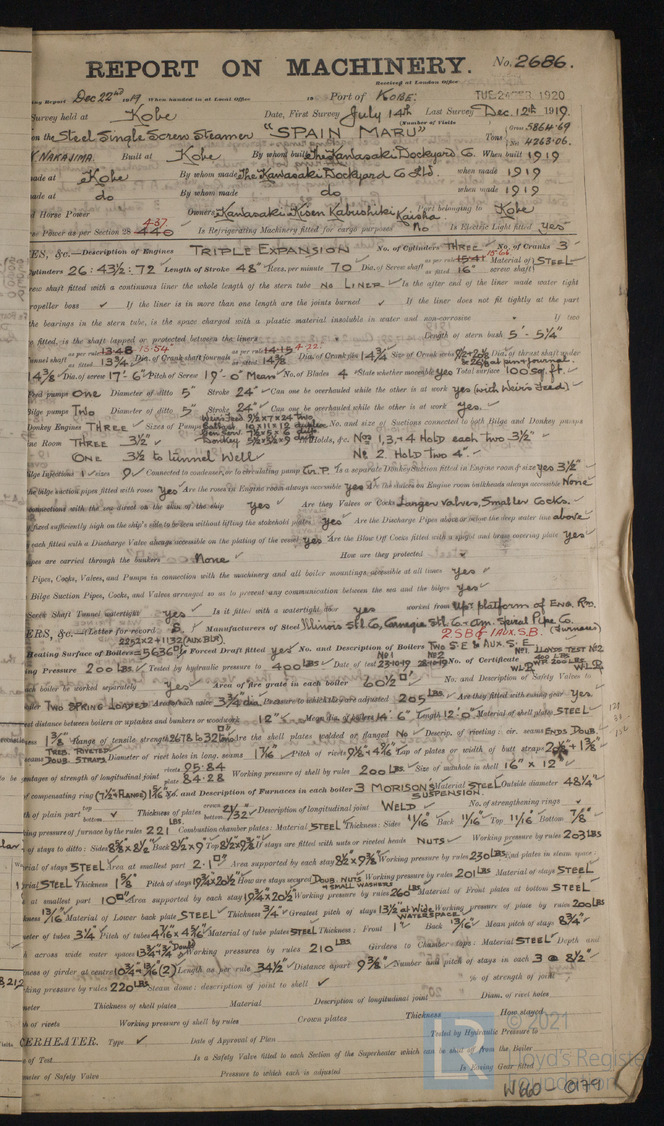 REPORT ON MACHINERY. No. 2686.
Received at London Office
Report Dec 22nd 1919 When handed in at Local Office 19 Port of KOBE. TUE. 1920
Survey held at Kobe Date, First Survey July 14th Last Survey Dec. 12th 1919.
(Number of Visits
on the Steel Single Screw Steamer "SPAIN MARU" Tons Gross 5864.69
Net 4263.06.
NAKAJIMA. Built at Kobe By whom built The Kawasaki Dockyard Co. When built 1919
made at Kobe By whom made The Kawasaki Dockyard Co Ltd. when made 1919
made at do By whom made do when made 1919
Horse Power Owners Kawasaki Kisen Kabushiki Kaisha. Port belonging to Kobe
Power as per Section 28 440 437 Is Refrigerating Machinery fitted for cargo purposes No Is Electric Light fitted yes
ES, &c.—Description of Engines TRIPLE EXPANSION No. of Cylinders THREE No. of Cranks 3
Cylinders 26: 43½: 72 Length of Stroke 48" Revs. per minute 70 Dia. of Screw shaft as per rule 15.41 15.66 as fitted 16" Material of screw shaft STEEL
screw shaft fitted with a continuous liner the whole length of the stern tube NO LINER Is the after end of the liner made water tight
propeller boss ✓ If the liner is in more than one length are the joints burned ✓ If the liner does not fit tightly at the part
the bearings in the stern tube, is the space charged with a plastic material insoluble in water and non-corrosive If two
fitted, is the shaft lapped or protected between the liners Length of stern bush 5'-5¼"
Tunnel shaft as per rule 13.48 13.54 as fitted 13¾" Dia. of Crank shaft journals as per rule 14.15 as fitted 14⅜ Dia. of Crank pin 14¾" Size of Crank webs Dia. of thrust shaft under
14⅜" Dia. of screw 17'-6" Pitch of Screw 19'-0" Mean No. of Blades 4 State whether moveable yes Total surface 100 sq. ft.
Feed pumps ONE Diameter of ditto 5" Stroke 24" Can one be overhauled while the other is at work yes (with Weir's Feed)
Bilge pumps TWO Diameter of ditto 5" Stroke 24" Can one be overhauled while the other is at work yes.
Donkey Engines THREE Sizes of Pumps Weir's Feed 9½x7x24 two
Ballast 10x11x12 duplex
Gen. Serv. 7½x5x6 duplex
Donkey 5½x3½x5 No. and size of Suctions connected to both Bilge and Donkey pumps
Engine Room THREE 3½" Holds, &c. Nos 1, 3, & 4 Hold each two 3½"
ONE 3½ to tunnel Well No 2 Hold two 4".
Bilge Injections 1 sizes 9 Connected to condenser, or to circulating pump Cir. P. Is a separate Donkey Suction fitted in Engine room & size yes 3½"
the bilge suction pipes fitted with roses yes Are the roses in Engine room always accessible yes Are the sluices on Engine room bulkheads always accessible None
connections with the sea direct on the skin of the ship yes Are they Valves or Cocks Larger valves, Smaller Cocks.
fixed sufficiently high on the ship's side to be seen without lifting the stokehold plates yes Are the Discharge Pipes above or below the deep water line above
each fitted with a Discharge Valve always accessible on the plating of the vessel yes Are the Blow Off Cocks fitted with a spigot and brass covering plate yes
pipes are carried through the bunkers None How are they protected
Pipes, Cocks, Valves, and Pumps in connection with the machinery and all boiler mountings accessible at all times yes
Bilge Suction Pipes, Cocks, and Valves arranged so as to prevent any communication between the sea and the bilges yes
Screw Shaft Tunnel watertight yes Is it fitted with a watertight door yes worked from Upr. platform of Eng. Rm.
ERS, &c.—(Letter for record S. Manufacturers of Steel Illinois Stl Co, Carnegie Stl Co. Am. Spiral Pipe Co. (Furnaces)
2252x2+1132 (AUX BLR) 2 S.B. & 1 Aux. S.B.
Heating Surface of Boilers = 5636 Forced Draft fitted yes No. and Description of Boilers Two S.E. & Aux. S.E.
Working Pressure 200 LBS Tested by hydraulic pressure to 400 LBS Date of test 23-10-19 No. of Certificate No 1. LLOYDS TEST No 2
400 LBS
W.P. 200 LBS
each boiler be worked separately yes Area of fire grate in each boiler 60½ No. and Description of Safety Valves to
boiler TWO SPRING LOADED Area of each valve 3¾ dia. Pressure to which they are adjusted 205 LBS Are they fitted with easing gear yes
distance between boilers or uptakes and bunkers or woodwork 12" Mean dia. of boilers 14'-6" Length 12'-0" Material of shell plates STEEL
1⅜" Range of tensile strength 28.678 to 32 Are the shell plates welded or flanged No Descrip. of riveting: cir. seams ENDS DOUB.
seams TREB. RIVETED DOUB. STRAPS Diameter of rivet holes in long. seams 1 7/16" Pitch of rivets Lap of plates or width of butt straps
percentages of strength of longitudinal joint rivets 95.84 plate 84.28 Working pressure of shell by rules 200 LBS Size of manhole in shell 16" x 12"
compensating ring (7½" FLANGE) No. and Description of Furnaces in each boiler 3 MORISONS SUSPENSION. Material STEEL Outside diameter 48¼"
of plain part top bottom ✓ Thickness of plates crown bottom 21/32 Description of longitudinal joint WELD No. of strengthening rings
working pressure of furnace by the rules 221 LBS. Combustion chamber plates: Material STEEL Thickness: Sides 11/16" Back 11/16" Top 11/16" Bottom 7/8"
of stays to ditto: Sides 8⅜x8½ Back 8½x9 Top If stays are fitted with nuts or riveted heads NUTS Working pressure by rules 203 LBS
Material of stays STEEL Area at smallest part 2.1 Area supported by each stay 8½x9⅜ Working pressure by rules 230 LBS End plates in steam space:
Material STEEL Thickness 1⅝ Pitch of stays 19¾x20½ How are stays secured DOUB. NUTS & SMALL WASHERS Working pressure by rules 201 LBS Material of stays STEEL
at smallest part 10 Area supported by each stay 19¾x20½ Working pressure by rules 260 LBS Material of Front plates at bottom STEEL
Thickness 13/16 Material of Lower back plate STEEL Thickness ¾" Greatest pitch of stays 13½ at Wide WATERSPACE Working pressure of plate by rules 200 LBS
Diameter of tubes 3¼ Pitch of tubes Material of tube plates STEEL Thickness: Front 1" Back 13/16" Mean pitch of stays 8¾"
across wide water spaces Working pressures by rules 210 LBS Girders to Chamber tops: Material STEEL Depth and
thickness of girder at centre Length as per rule 34½ Distance apart 9⅜ Number and pitch of stays in each 3 @ 8½"
Working pressure by rules 220 LBS Steam dome: description of joint to shell ✓ % of strength of joint
Diameter Thickness of shell plates Material Description of longitudinal joint Diam. of rivet holes
of rivets Working pressure of shell by rules Crown plates Thickness How stayed
ERHEATER. Type ✓ Date of Approval of Plan Tested by Hydraulic Pressure to
of Test Is a Safety Valve fitted to each Section of the Superheater which can be shut off from the Boiler
Diameter of Safety Valve Pressure to which each is adjusted Is Easing Gear fitted
© 2021
Lloyd's Register
Foundation
W660-0179